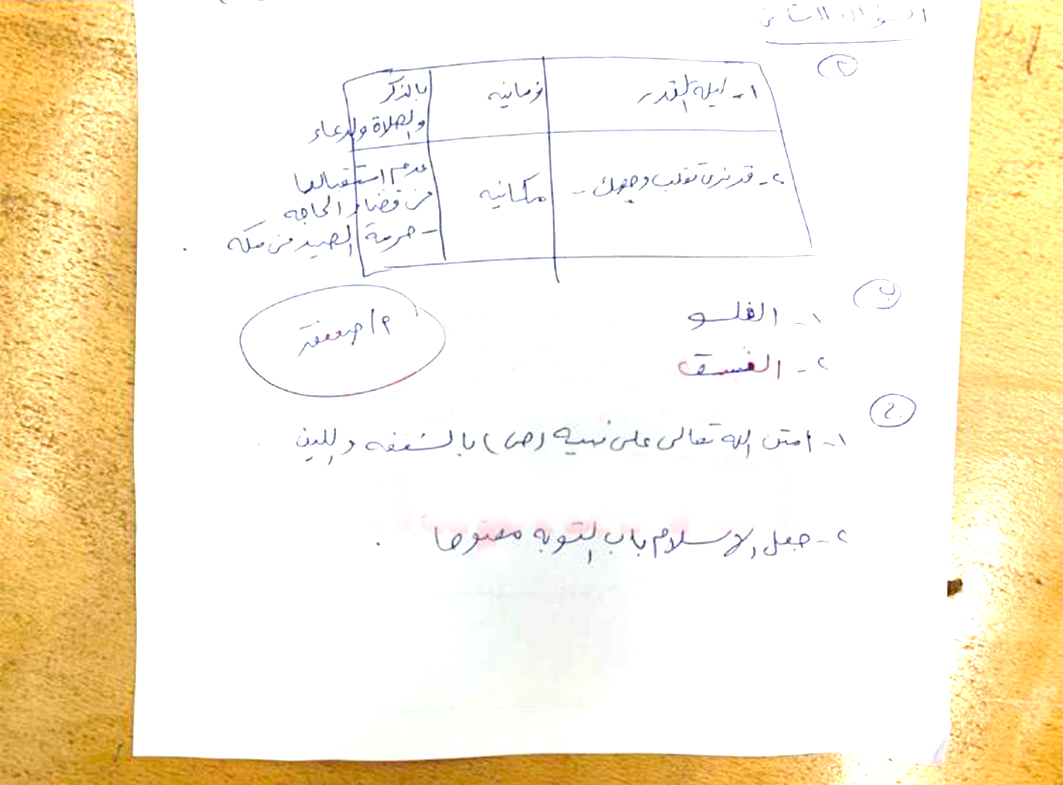 السؤال الثاني
١
٢
١- ليلة القدر
زمانيه
بالذكر
والصلاة والدعاء
٢- قد نرى تقلب وجهك -
مكانيه
عدم استقبالها
في قضاء الحاجه
- حرمة الصيد في مكه
ب
١- الغلو
٢- الفسق
م/ صفقة
ج
١- امتن الله تعالى على نبيه (ص) بالشفقه واللين
٢- جعل الاسلام باب التوبه مفتوحا